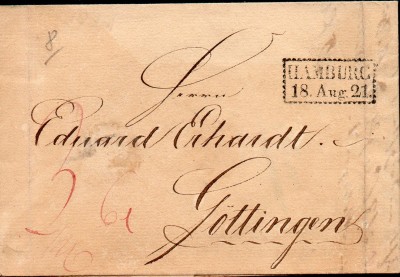 8/
HAMBURG
18. Aug. 21.
Herrn
Eduard Erhardt.
Göttingen